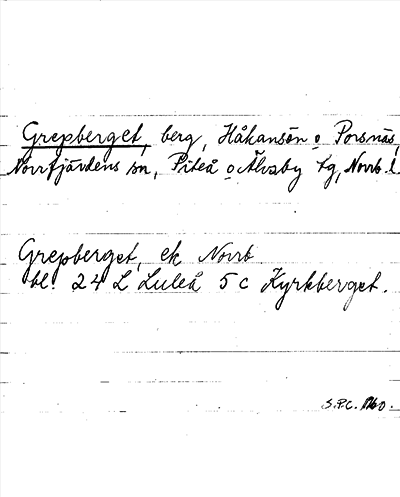 Grepberget, berg, Håkansön o Porsnäs,
Norrfjärdens sn, Piteå o Älvsby tg, Norrb. l.
Grepberget, ek Norrb
bl. 24 L Luleå 5 c Kyrkberget.
S.P.C. 1960.